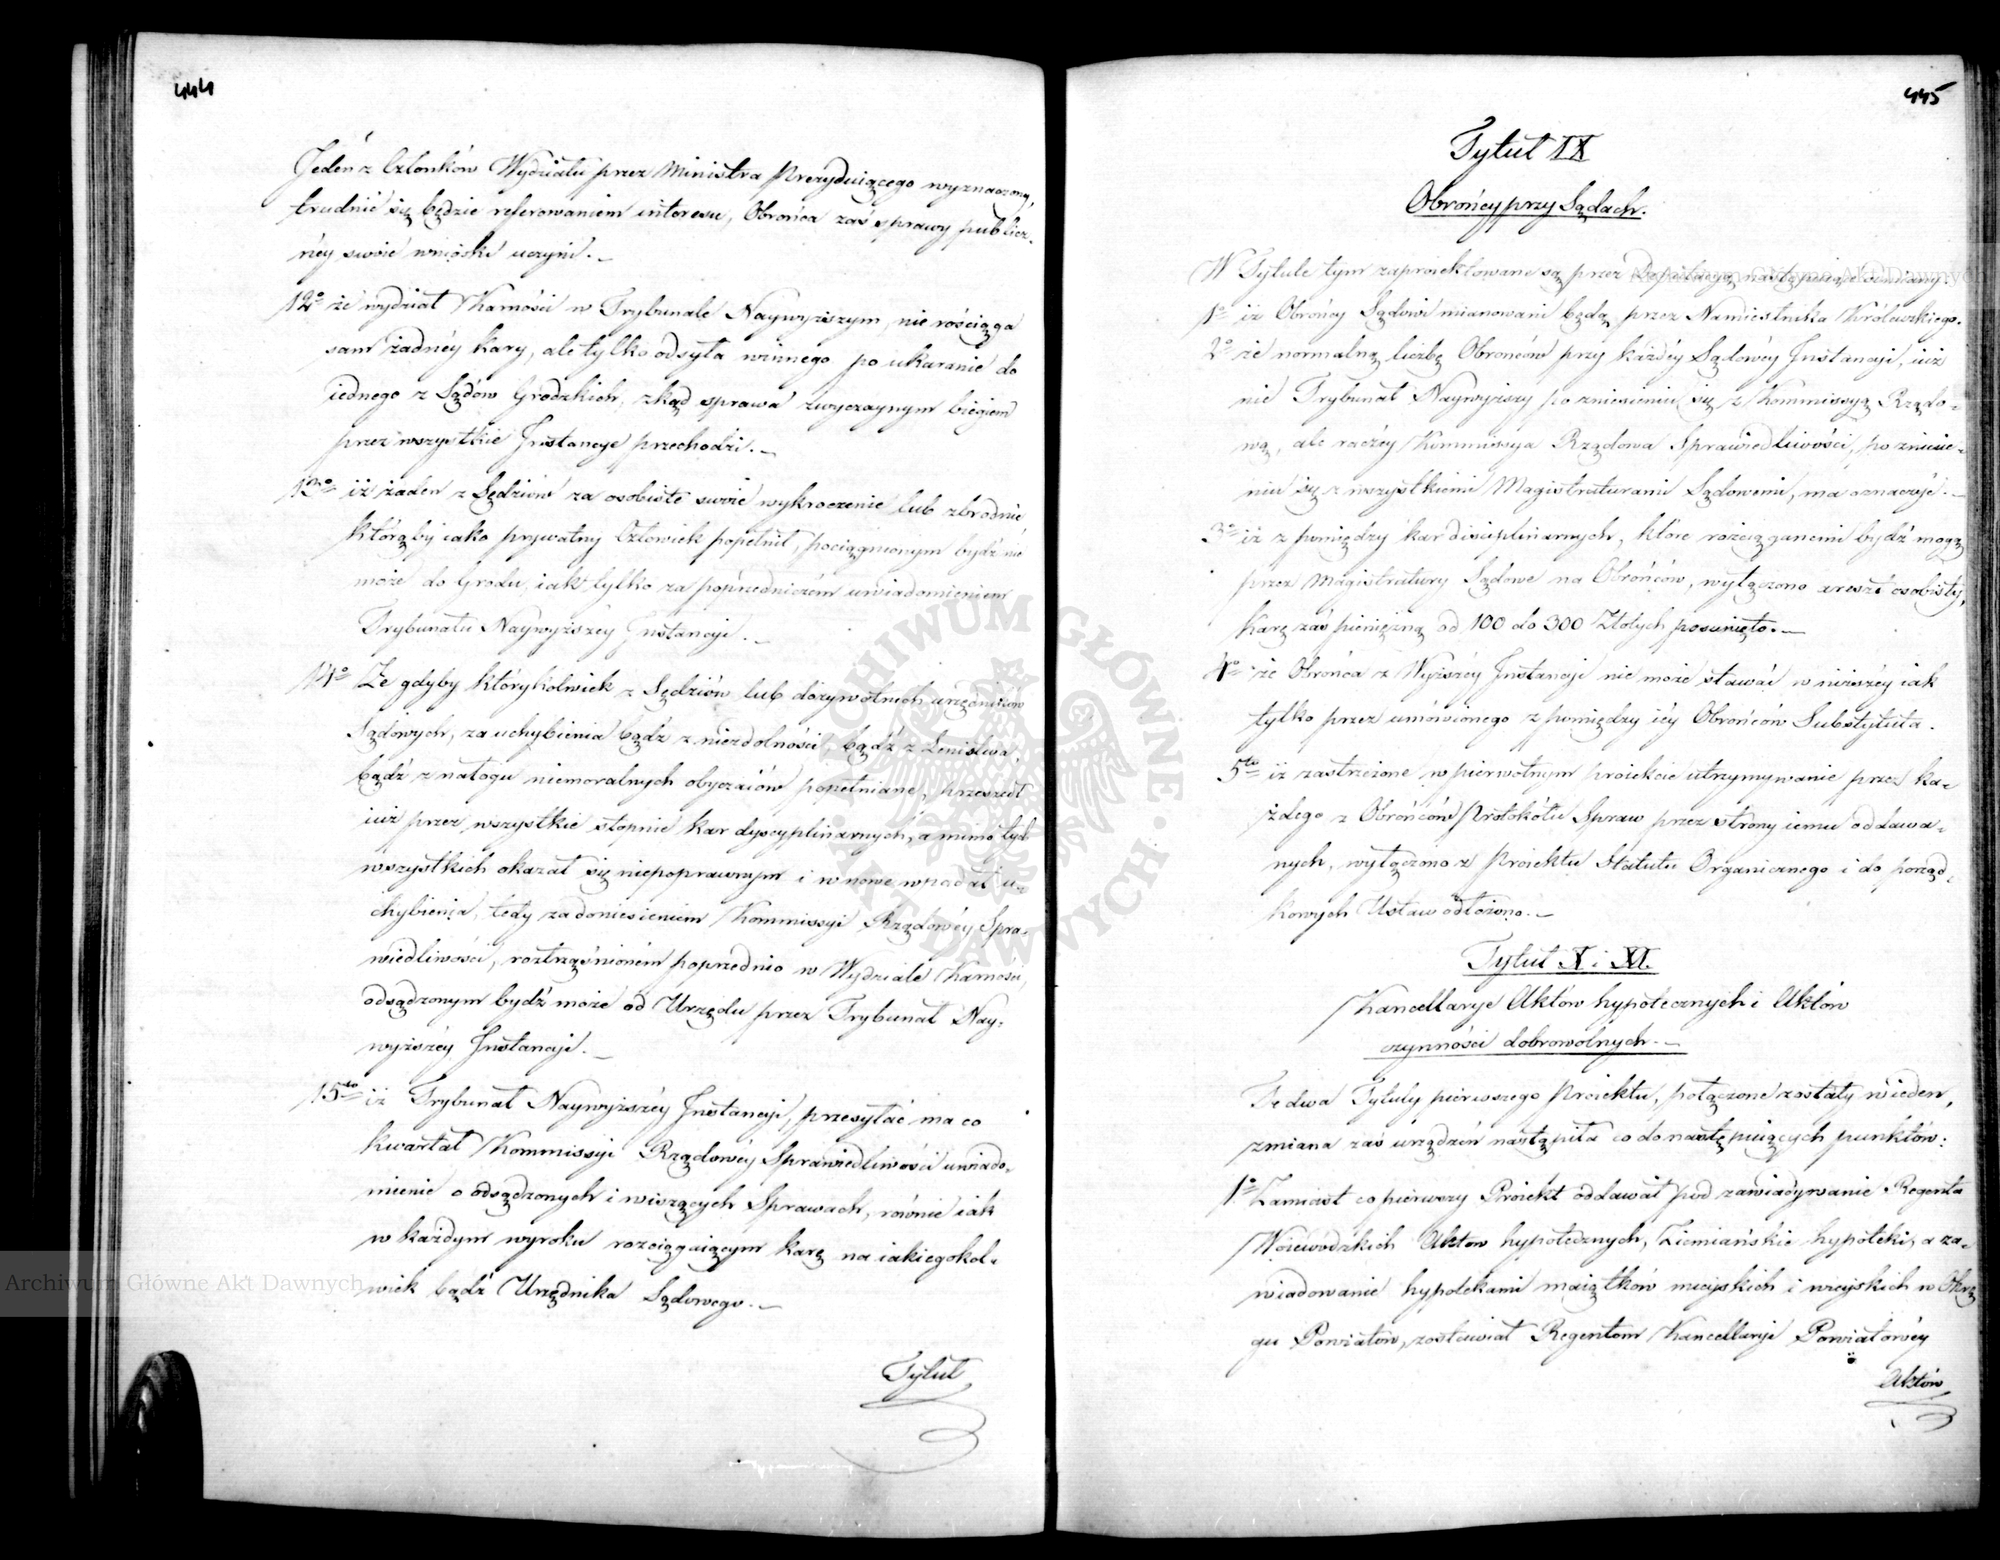 444
Jeden z Członków Wydziału przez Ministra Prezyduiącego wyznaczony,
trudnić się będzie referowaniem interesu, Obrońca zaś sprawy publicz-
néy swoie wnioski uczyni.
12o że wydział Karności w Trybunale Naywyższym, nie rościąga
sam żadnéy kary, ale tylko odsyła winnego po ukaranie do
iednego z Sądów Grodzkich, zkąd sprawa zwyczaynym biegiem
przez wszystkie Instancye przechodzi.
13o iż żaden z Sędziów za osobiste swoie wykroczenie lub zbrodnię
którąby iako prywatny Człowiek popełnił, pociągnionym bydź nie
może do Grodu, iak tylko za poprzedniczém uwiadomieniem
Trybunału Naywyższéy Instancyi.
14o Że gdyby którykolwiek z Sędziów lub dożywotnich urzędników
Sądowych, za uchybienia bądź z niezdolności, bądź z Lenistwa,
bądź z nałogu niemoralnych obyczaiów popełniane, przeszedł
iuż przez wszystkie stopnie kar dyscyplinarnych, a mimo tych
wszystkich okazał się niepoprawnym i w nowe wpadał u-
chybienia, tedy za doniesieniem Kommissyi Rządowéy Spra-
wiedliwości, roztrząśnioném poprzednio w Wydziale Karności,
odsądzonym bydź może od Urzędu przez Trybunał Nay-
wyższéy Instancyi.
15to iż Trybunał Naywyższéy Instancyi, przesyłać ma co
kwartał Kommissyi Rządowéy Sprawiedliwości uwiado-
mienie o odsądzonych i wiszących Sprawach, równie iak
w każdym wyroku rozciągaiącym karę na iakiegokol-
wiek bądź Urzędnika Sądowego.
Tytuł
445
Tytuł IX
Obrońcy przy Sądach.
W Tytule tym zaproiektowane są przez Deputacyą następuiące odmiany:
1o iż Obrońcy Sądowi mianowani będą przez Namiestnika Królewskiego.
2o że normalną liczbę Obrońców przy każdéy Sądowéy Instancyi, iuż
nie Trybunał Naywyższy po zniesieniu się z Kommissyą Rządo-
wą, ale raczéy Kommissya Rządowa Sprawiedliwości, po zniesie-
niu się z wszystkiemi Magistraturami Sądowemi, ma oznaczyć.
3o iż z pomiędzy kar disciplinarnych, które rozciąganemi bydź mogą
przez Magistratury Sądowe na Obrońców, wyłączono areszt osobisty,
karę zaś pieniężną od 100 do 300 Złotych posunięto.
4o że Obrońca z Wyższéy Instancyi nie może stawać w niższéy iak
tylko przez umówionego z pomiędzy iéy Obrońców Substytuta.
5to iż zastrzeżone w pierwotnym proiekcie utrzymywanie przez ka-
żdego z Obrońców Protokółu Spraw przez strony iemu oddawa-
nych, wyłączono z Proiektu Statutu Organicznego i do porząd-
kowych Ustaw odłożono.
Tytuł X i XI.
Kancellarye Aktów hypotecznych i Aktów
czynności dobrowolnych.
Te dwa Tytuły pierwszego Proiektu, połączone zostały w ieden,
zmiana zaś urządzeń nastąpiła co do następuiących punktów:
1o Zamiast co pierwszy Proiekt oddawał pod zawiadywanie Regenta
Woiewódzkich Aktów hypotecznych, Ziemiańskie hypoteki, a za-
wiadowanie hypotekami maiątków mieyskich i wieyskich w Okrę
gu Powiatów, zostawiał Regentom Kancellaryi Powiatowéy
Aktów
ARCHIWUM GŁÓWNE AKT DAWNYCH
Archiwum Główne Akt Dawnych
Archiwum Główne Akt Dawnych